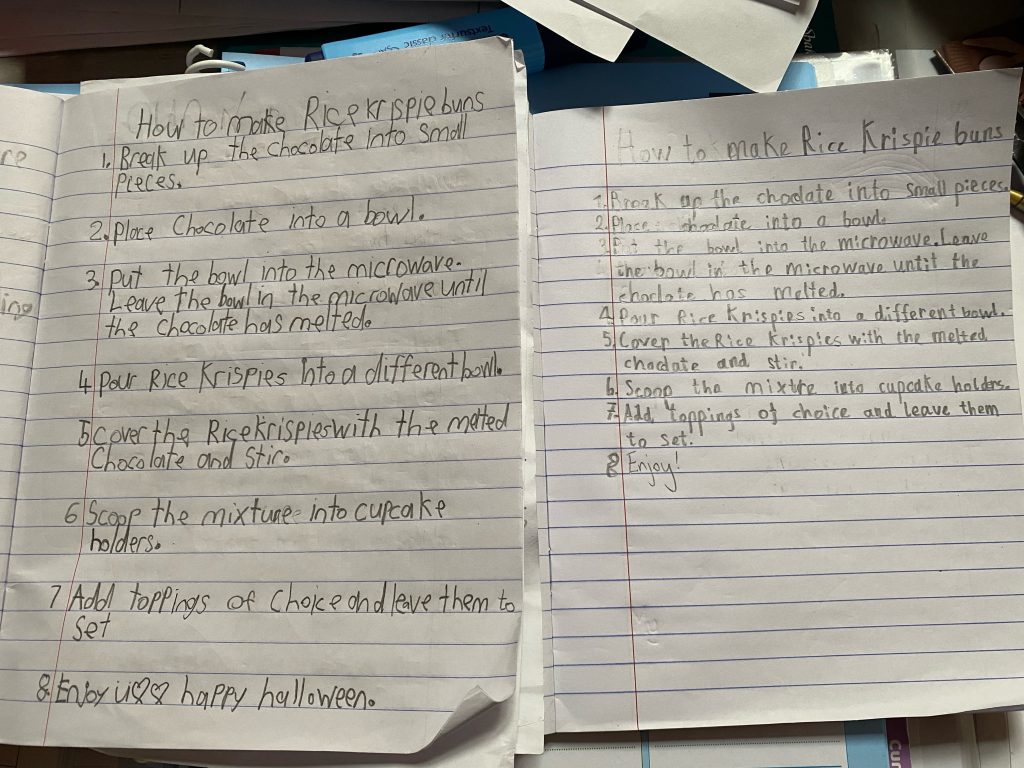 re
ing
How to make Rice krispie buns
1. Break up the chocolate into small
pieces.
2. Place Chocolate into a bowl.
3 Put the bowl into the microwave.
Leave the bowl in the microwave until
the chocolate has melted.
4 Pour Rice Krispies into a different bowl.
5 Cover the Rice Krispies with the melted
Chocolate and stir.
6 Scoop the mixture into cupcake
holders.
7 Add toppings of Choice and leave them to
set
8 Enjoy u♡♡ happy halloween.
How to make Rice Krispie buns
1. Break up the choclate into small pieces.
2. Place choclate into a bowl.
3. Put the bowl into the microwave. Leave
the bowl in the microwave until the
choclate has melted.
4. Pour Rice Krispies into a different bowl.
5. Cover the Rice Krispies with the melted
choclate and stir.
6. Scoop the mixture into cupcake holders.
7. Add toppings of choice and leave them
to set.
8 Enjoy!
Textsurfer classic
Cur